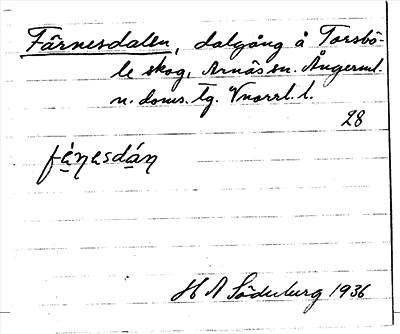 Färnesdalen, dalgång å Torsbö-
le skog, Arnäs sn. Ångerml.
n. doms. tg. Vnorrl. l.
28
fä̀ṇesdáṇ
H A Söderberg 1936